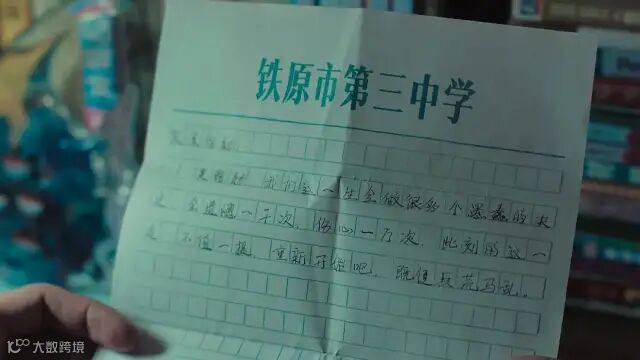 铁原市第三中学
是啊,我们这一生会做很多个愚蠢的决
定,会遗憾一千次,伤心一万次,此刻的这一
不值一提,重新开始吧,随便兵荒马乱。
大数跨境